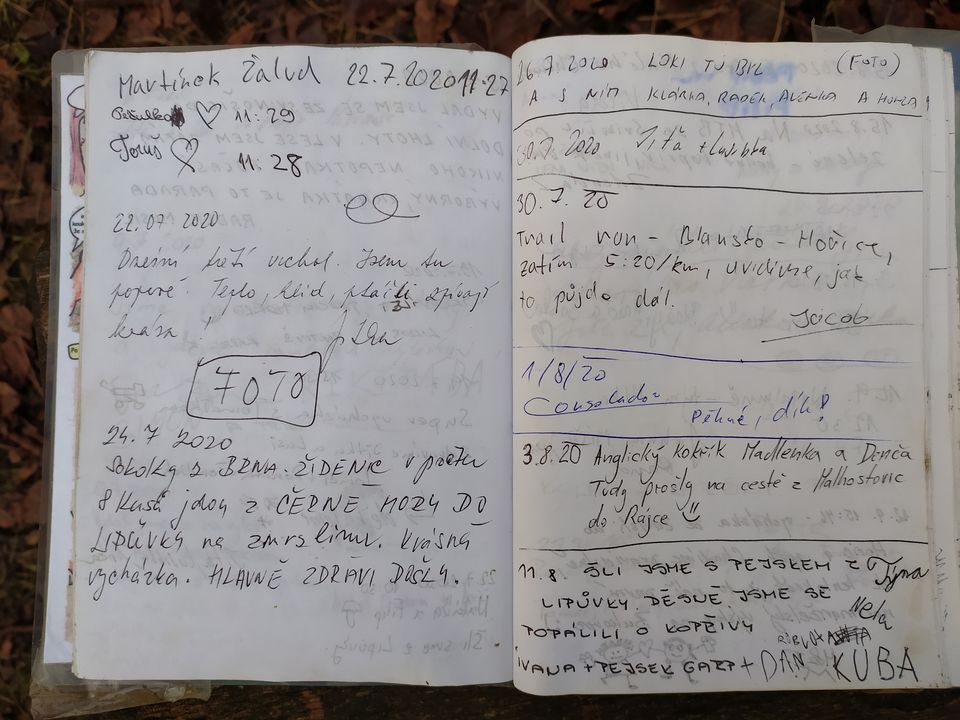 Martínek Žalud 22.7.2020 11:27
11:29
Toruš 11:28
22.07 2020
Dnešní třetí vrchol. Jsem tu
poprvé. Teplo, klid, ptáčci zpívají
krása!
FOTO
24.7 2020
Sokolky z BRNA-ŽIDENIC v počtu
8 kusů jdou z ČERNÉ HORY DO
LIPŮVKY na zmrzlinu. Krásná
vycházka. HLAVNĚ ZDRAVÍ DOŠLY.
26.7 2020 LOKI TU BYL (FOTO)
A S NÍM KLÁRKA, RADEK, ALENKA A HONZA!
30.7. 2020 Víťa +
30.7.20
Trail run - Blansko - Hořice,
zatím 5:20/km, uvidíme, jak
to půjde dál.
Jacob
1/8/20
Pěkné, dík!
3.8.20 Anglický kokřík Madlenka a Denča
Tudy prošly na cestě z Malhostovic
do Rájce
11.8. ŠLI JSME S PEJSKEM Z Týna
LIPŮVKY. DĚSNĚ JSME SE Nela
POPÁLILI O KOPŘIVY
IVANA + PEJSEK + DAN KUBA